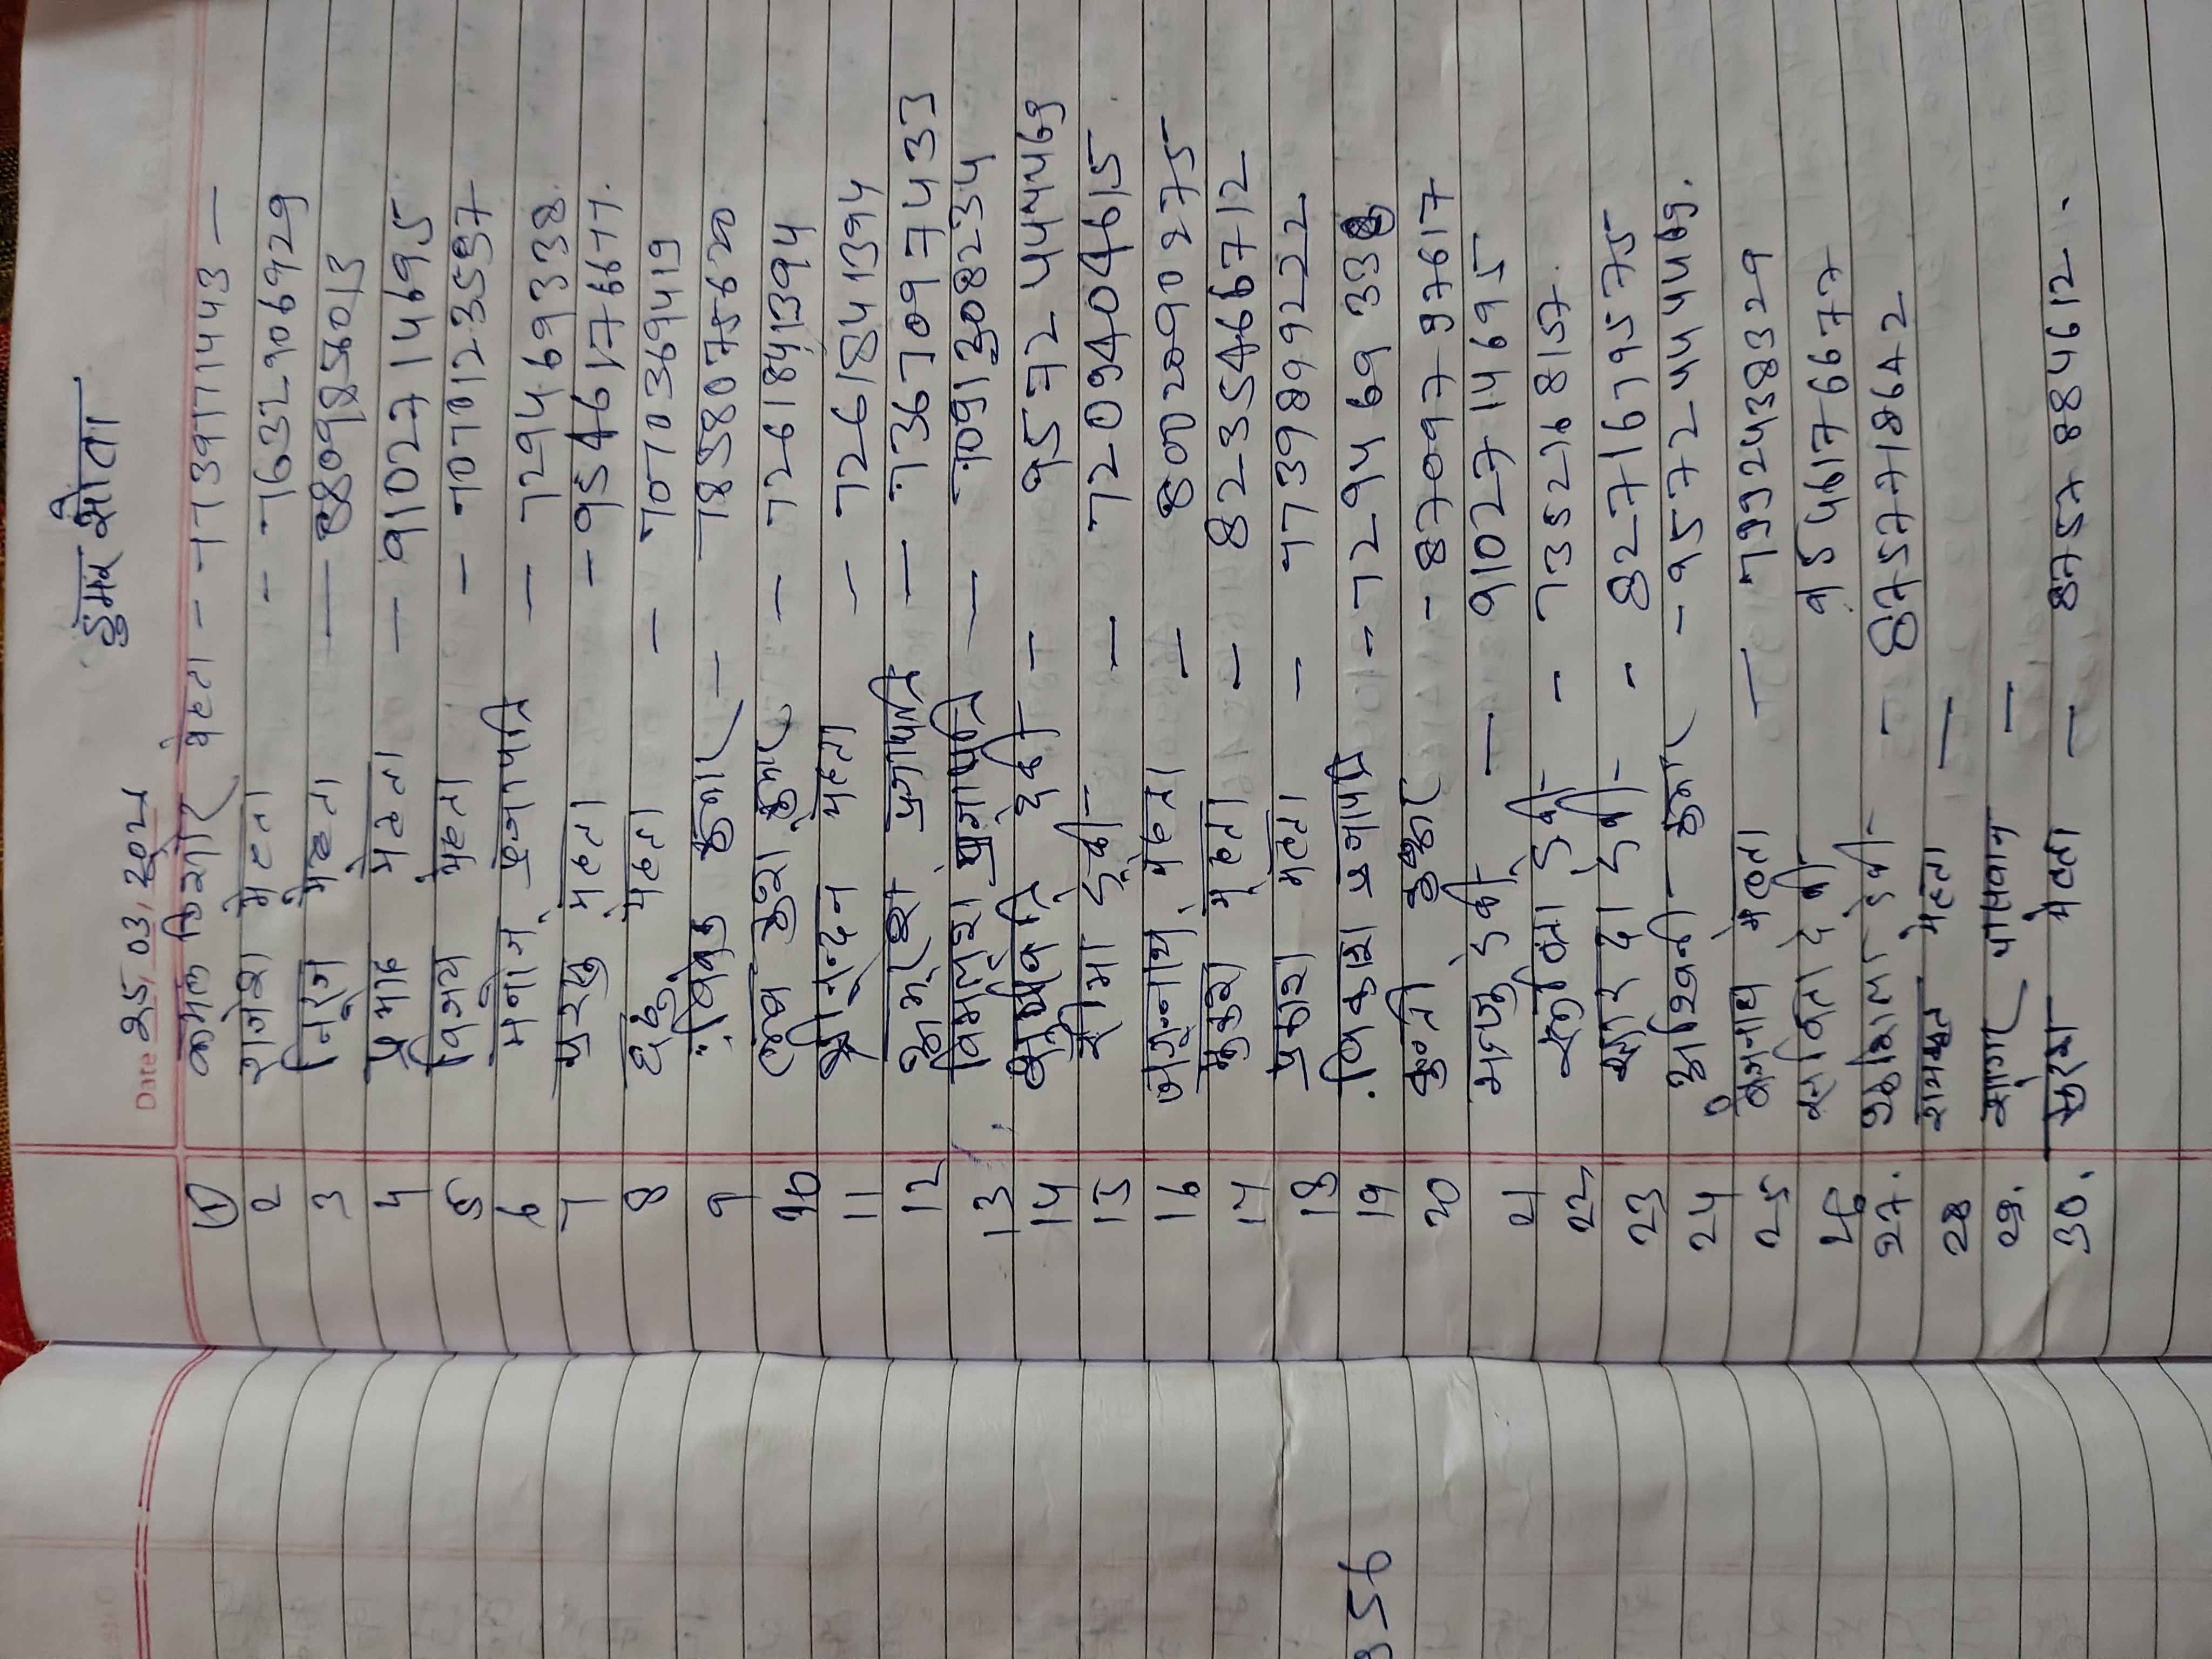 डुमर सोता
Date 25/03/2021
① कमल किशोर मेहता - 7739771443 -
2 राजेश मेहता - 7632906929
3 निरज मेहता - 88091856013
4 प्रमोद मेहता - 9102714695
5 विजय मेहता - 7070123597
6 मनोज प्रजापति - 7294469338.
7 मेहता - 9546176677.
8 मेहता - 7070369419
9 विवेक कुमार - 7858075620
10 लव कुश कुमार - 7261841394
11 मेहता - 7261841394
12 प्रजापति - 7367097433
13 विमलेश प्रजापति - 7091308234
14 देवी - 9572444469
15 सीमा देवी - 7209404615
16 जगरनाथ मेहता - 8002090275
17 मुकेश मेहता - 8235466712
18 प्रकाश मेहता - 7739899222
19 विकाश प्रजापति - 7294469338
20 कुन्ती कुमार - 8709797617
21 मन्जु देवी - 9102714695
22 देवी - 7352168157.
23 देवी - 8271679575
24 अश्विनी कुमार - 9572444469.
25 बैजनाथ मेहता - 7992438329
26 सविता देवी 9546176677
27. देवी - 8757718642
28 मेहता -
29. पासवान -
30. सुरेश मेहता - 8757884612.
356